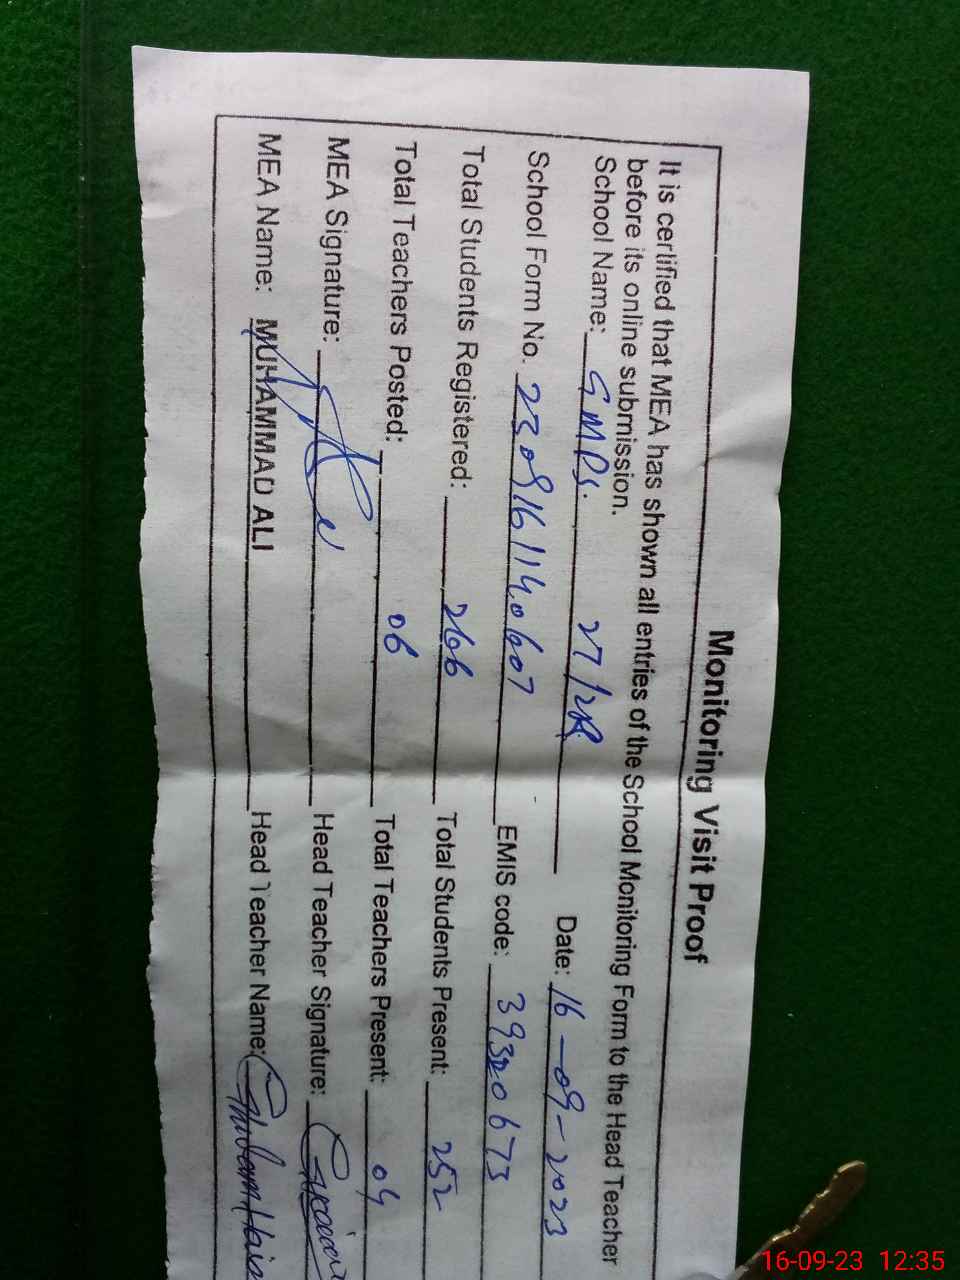 Monitoring Visit Proof
It is certified that MEA has shown all entries of the School Monitoring Form to the Head Teacher
before its online submission.
School Name: GMPS. 27/2R Date: 16-09-2023
School Form No. 230916114.0607 EMIS code: 39320673
Total Students Registered: 266 Total Students Present: 252
Total Teachers Posted: 06 Total Teachers Present: 04
MEA Signature: Head Teacher Signature:
MEA Name: MUHAMMAD ALI Head Teacher Name: Ghulam
16-09-23 12:35